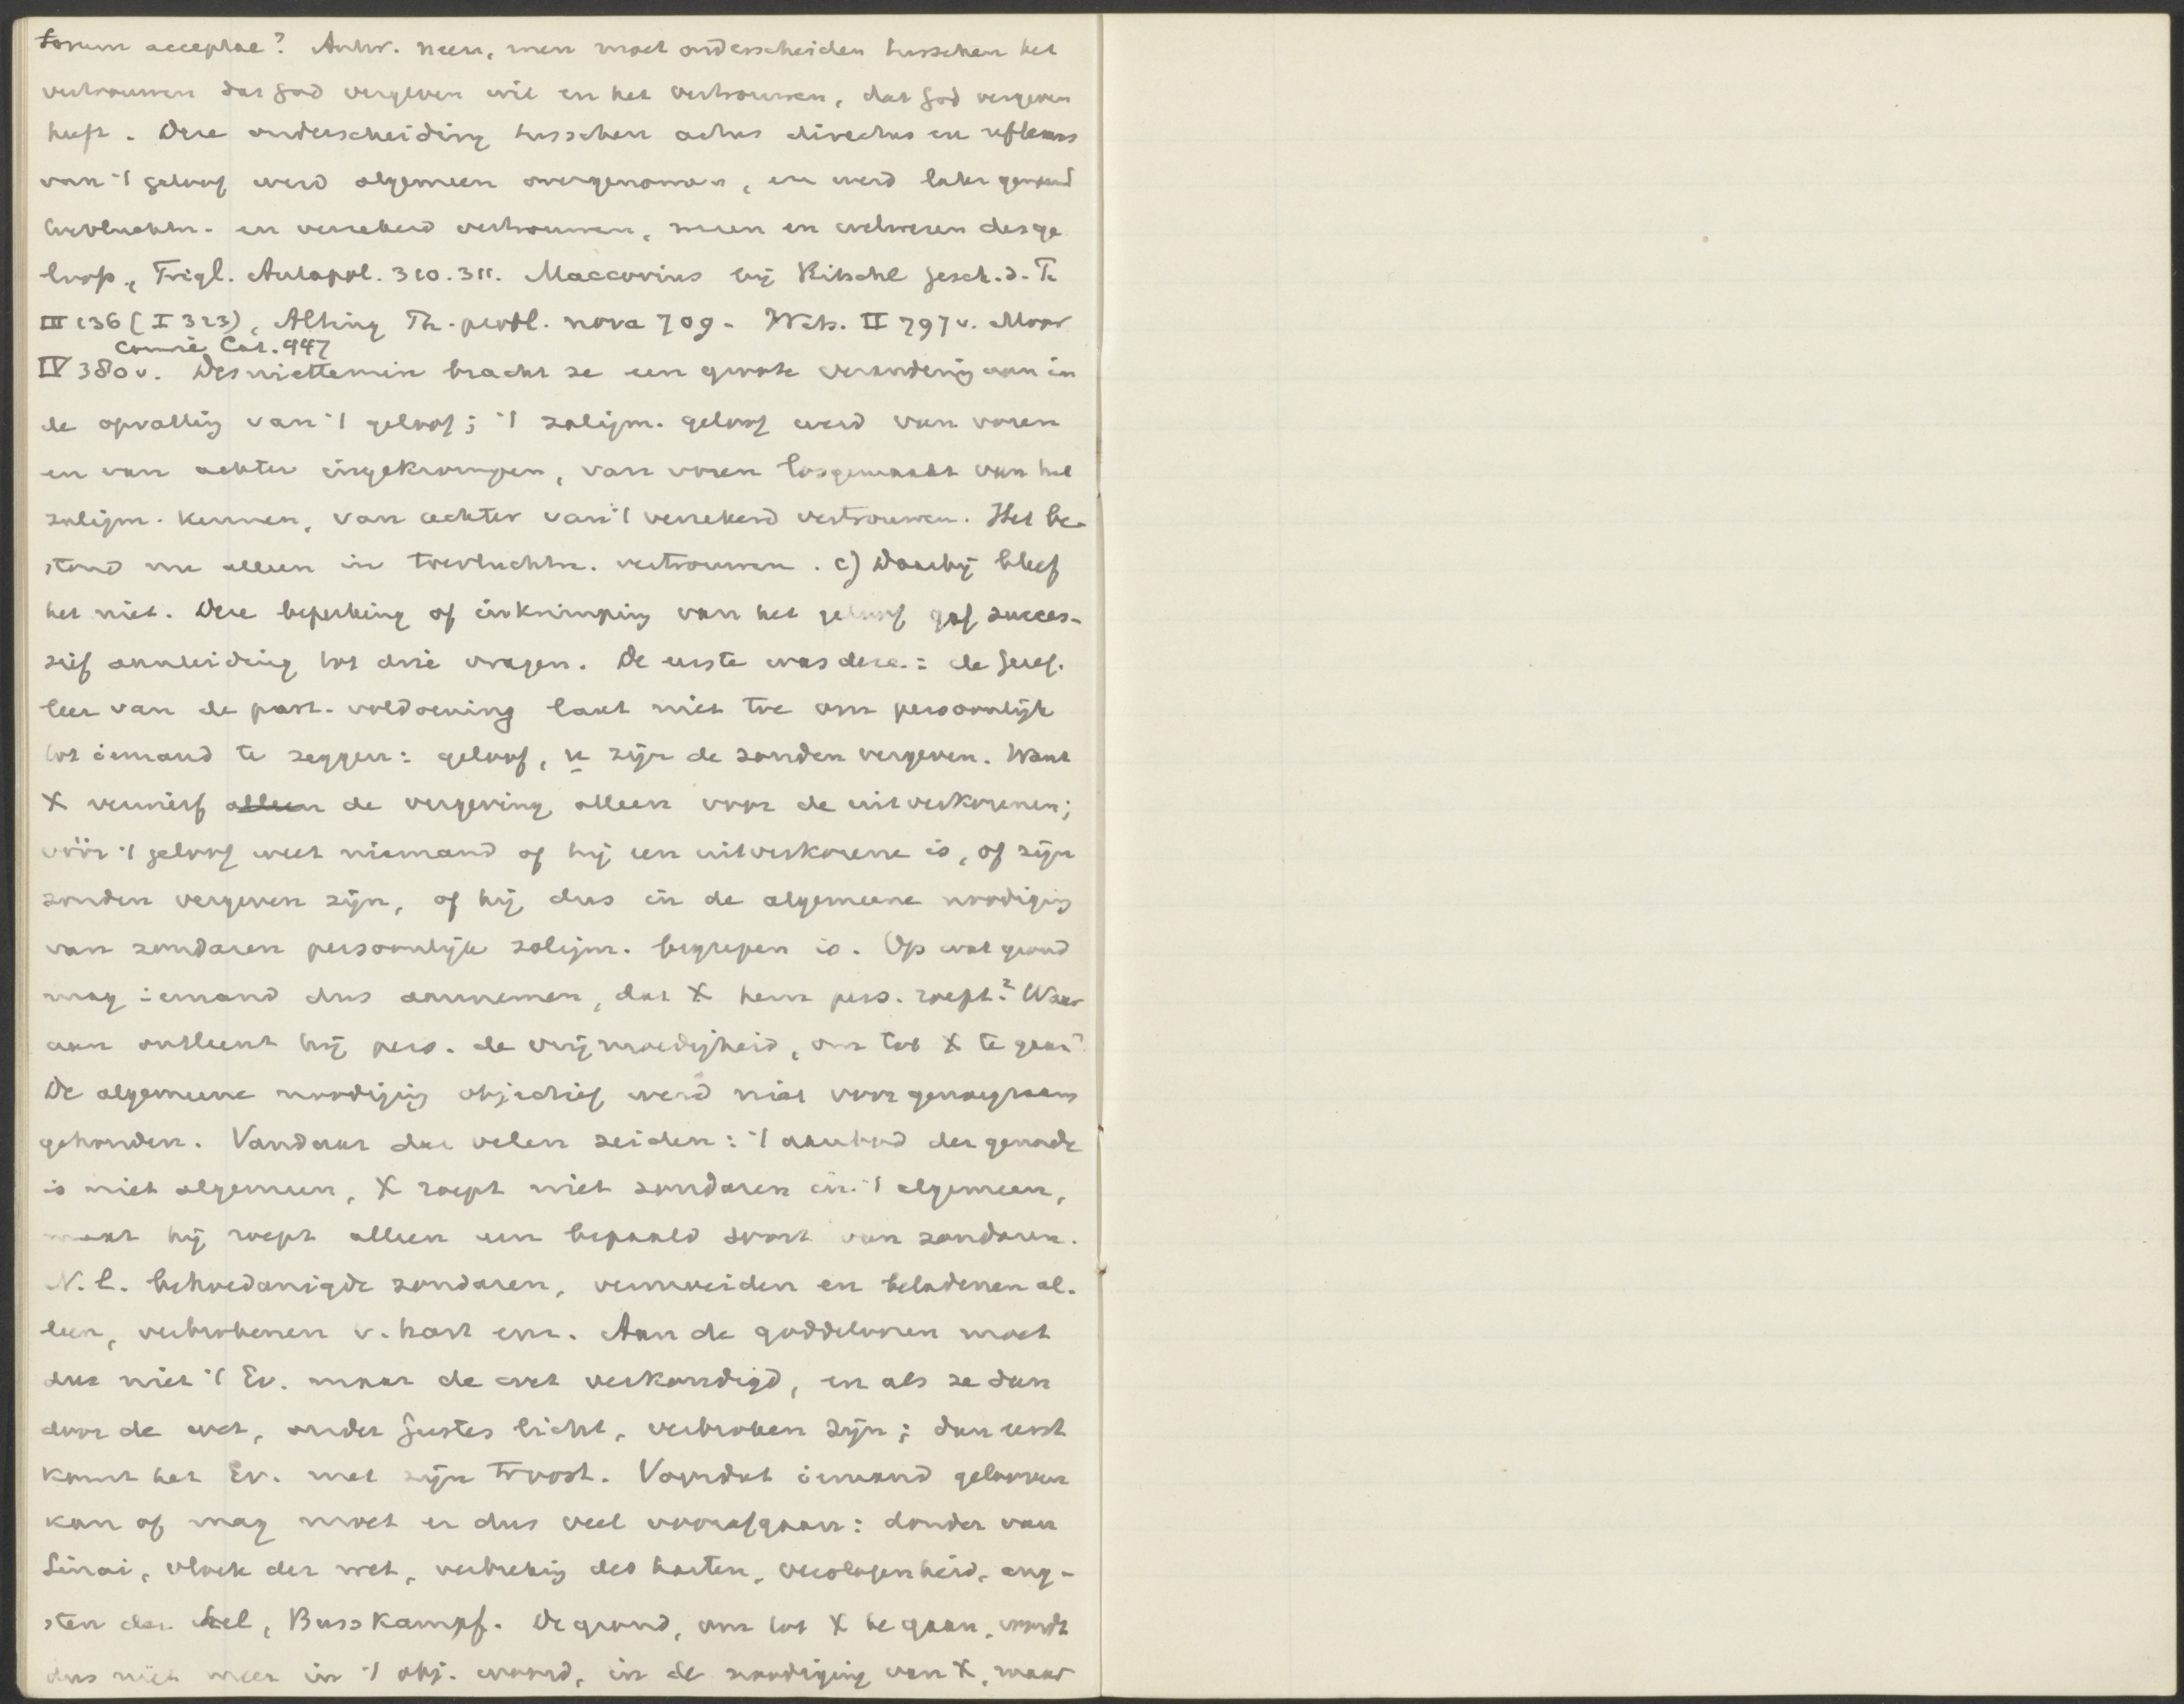 torum acceptae? Antw. neen, men moet onderscheiden tusschen het
vertrouwen dat God vergeven wil en het vertrouwen, dat God vergeven
heeft. Deze onderscheiding tusschen actus directus en reflexus
van 't geloof werd algemeen overgenomen, en werd later genoemd
toevluchtn. en verzekerd vertrouwen, wezen en welwezen des ge
loofs, Trigl. Antapol. 310.311. Maccovius bij Ritschl Gesch. d. Th
III 236 (I 323), Alting Th. probl. nova 709. Wits. II 797 v. Moor
Comrie Cat. 947
IV 380 v. Desniettemin bracht ze een groote verandering aan in
de opvatting van 't geloof; 't zaligm. geloof werd van voren
en van achter ingekrompen, van voren losgemaakt van het
zaligm. kennen, van achter van 't verzekerd vertrouwen. Het be-
stond nu alleen in toevluchtn. vertrouwen. c) Daarbij bleef
het niet. Deze beperking of inkrimping van het geloof gaf succes-
sief aanleiding tot drie vragen. De eerste was deze: de Geref.
leer van de part. voldoening laat niet toe om persoonlijk
tot iemand te zeggen: geloof, u zijn de zonden vergeven. Want
X verwierf alleen de vergeving alleen voor de uitverkorenen;
vóór 't geloof weet niemand of hij een uitverkorene is, of zijn
zonden vergeven zijn, of hij dus in de algemeene noodiging
van zondaren persoonlijk zaligm. begrepen is. Op wat grond
mag iemand dus aannemen, dat X hem pers. roept? Waar
aan ontleent hij pers. de vrijmoedigheid, om tot X te gaan?
De algemeene noodiging objectief werd niet voor genoegzaam
gehouden. Vandaar dat velen zeiden: 't aanbod der genade
is niet algemeen, X roept niet zondaren in 't algemeen,
maar hij roept alleen een bepaald soort van zondaren.
N.l. behoedanigde zondaren, vermoeiden en beladenen al-
leen, verbrokenen v. hart enz. Aan de goddeloozen moet
dus niet 't Ev. maar de wet verkondigd, en als ze dan
door de wet, onder Geestes licht, verbroken zijn; dan eerst
komt het Ev. met zijn troost. Voordat iemand gelooven
kan of mag moet er dus veel voorafgaan: donder van
Sinai, vloek der wet, verbreking des harten, verslagenheid, ang-
sten der hel, Busskampf. De grond, om tot X te gaan, wordt
dus niet meer in 't obj. woord, in de noodiging van X, maar